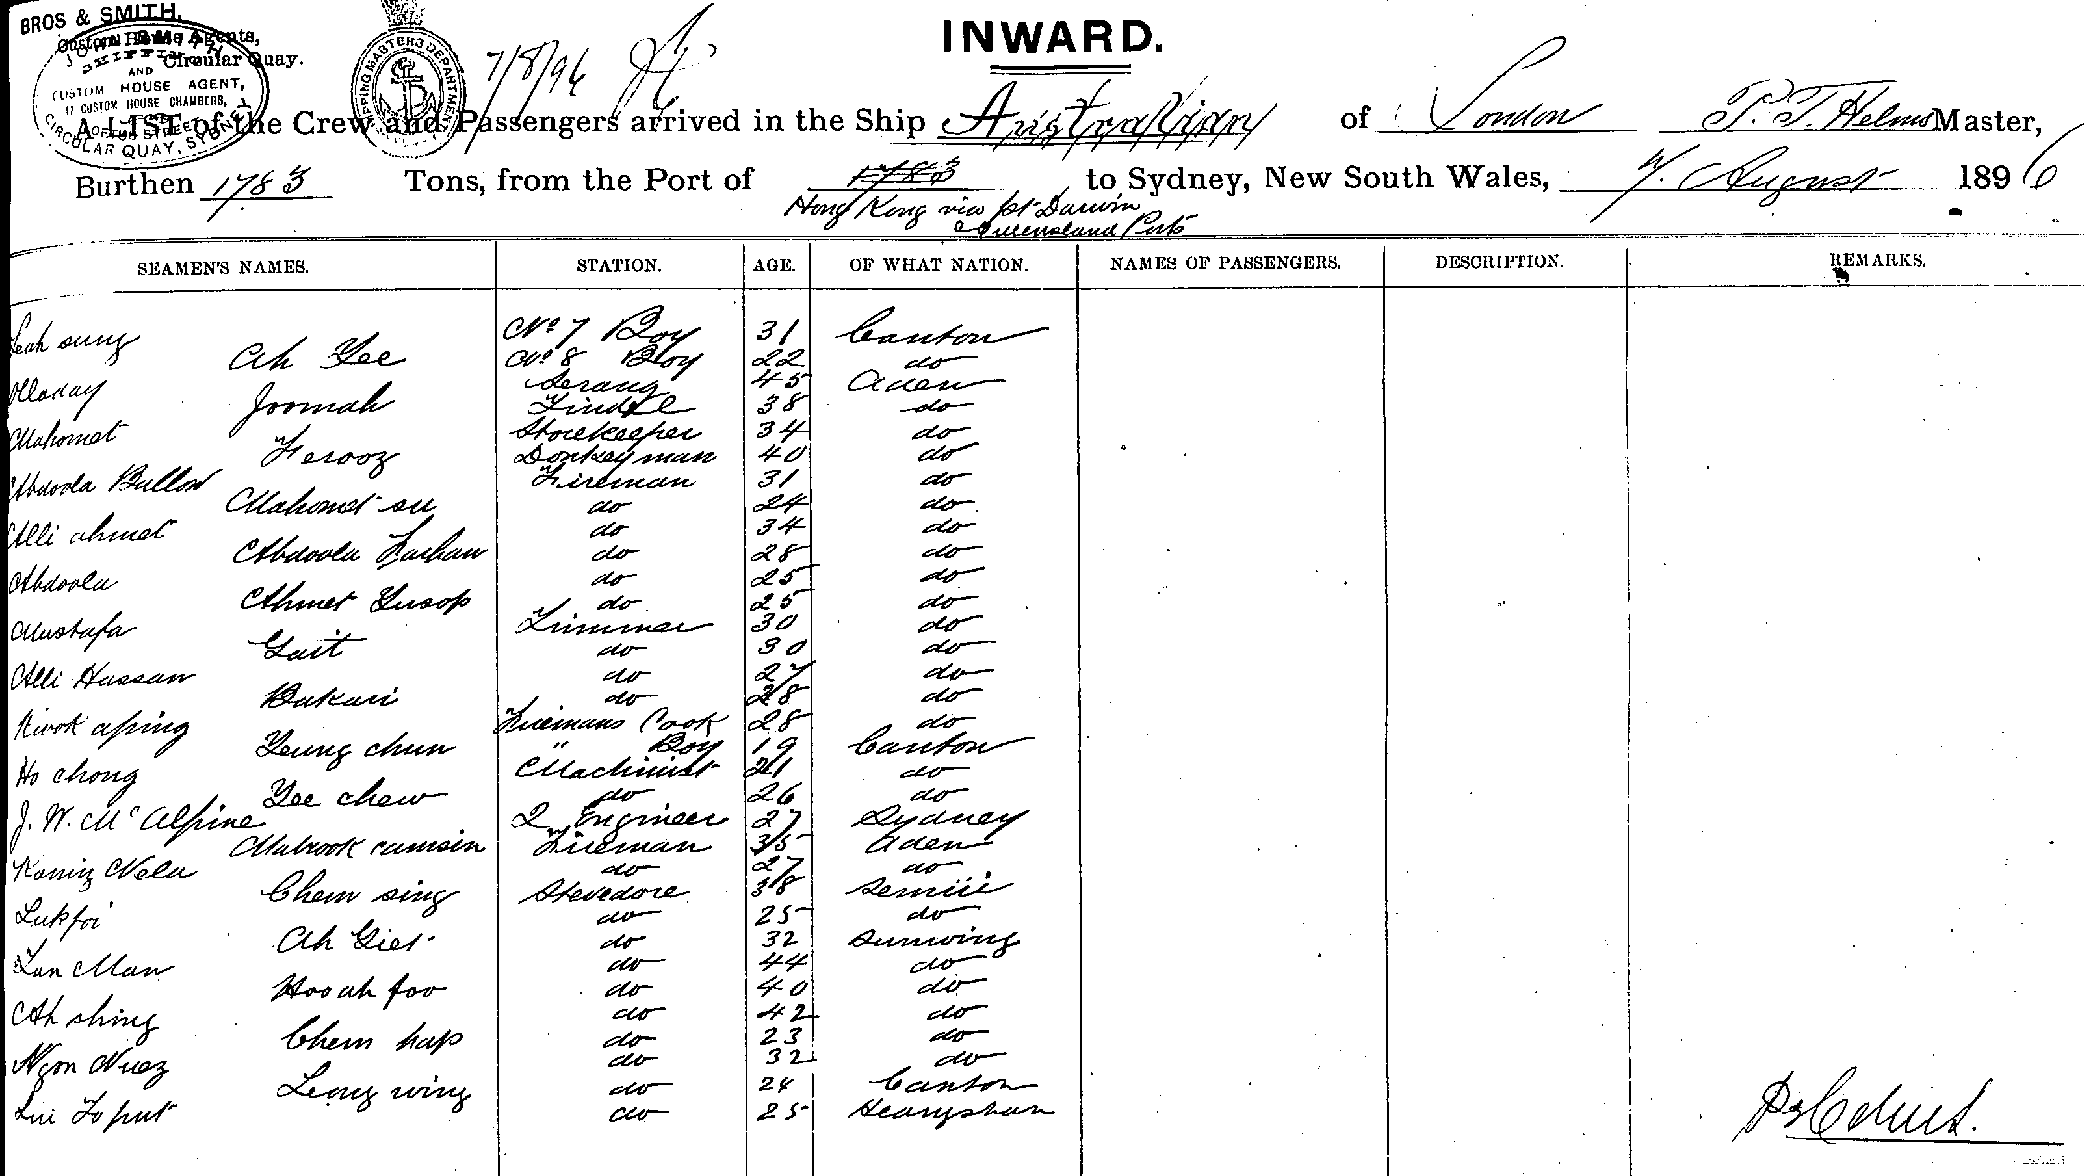 BROS & SMITH,
Custom House Agents,
Circular Quay.
JOHN SMITH
SHIPPING
AND
CUSTOM HOUSE AGENT,
17 CUSTOM HOUSE CHAMBERS,
LOFTUS STREET
CIRCULAR QUAY, SYDNEY
SHIPPING MASTERS DEPARTMENT
7/8/96
INWARD.
A LIST of the Crew and Passengers arrived in the Ship Australian of London P. T. Helms Master,
Burthen 1783 Tons, from the Port of 1783 to Sydney, New South Wales, 7. August 1896
Hong Kong via Pt Darwin
& Queensland Ports
SEAMEN'S NAMES. STATION. AGE. OF WHAT NATION. NAMES OF PASSENGERS. DESCRIPTION. REMARKS.
Leah sung No 7 Boy 31 Canton
Ah Yee No 8 Boy 22 do
Serang 45 Aden
Joomah Tindle 38 do
Mahomet Storekeeper 34 do
Ferooz Donkeyman 40 do
Abdoola Fireman 31 do
Mahomet do 24 do
Alli ahmet do 34 do
Abdoola do 28 do
Abdoola do 25 do
Ahmet Yusop do 25 do
Mustafa Trimmer 30 do
do 30 do
Alli Hassan do 27 do
Bakari do 28 do
Kwok aping Firemans Cook 28 do
Yeung chun " Boy 19 Canton
Ho chong Machinist 21 do
Yee chew do 26 do
J. W. McAlpine 2 Engineer 27 Sydney
Mabrook camsin Fireman 35 Aden
do 27 do
Chem sing Stevedore 38
Lukfoi do 25 do
Ah do 32 Sunwing
Lan Man do 44 do
Hoo ah foo do 40 do
Ah shing do 42 do
Chem hap do 23 do
do 32 do
Leong wing do 24 Canton
do 25 Heangshan